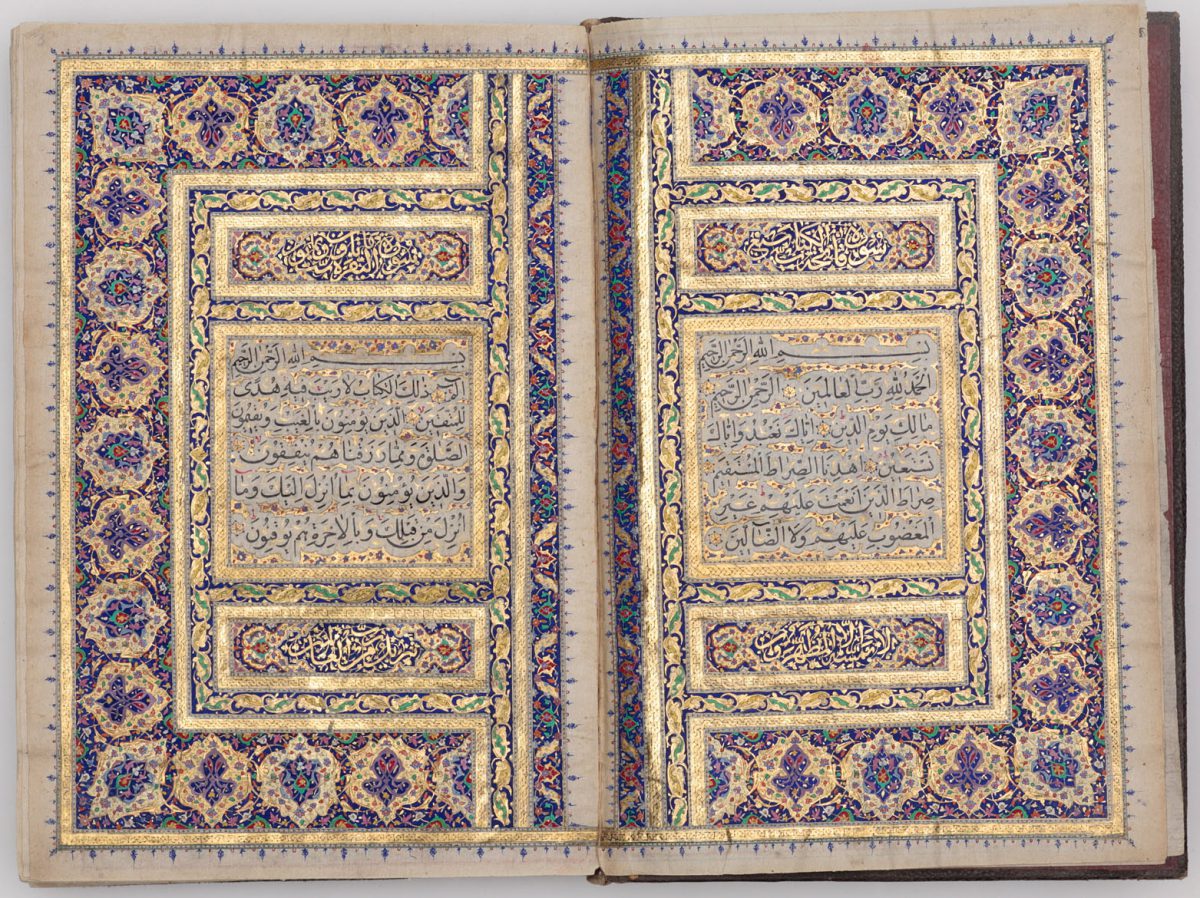 سورة فاتحة الكتاب
بِسْمِ اللهِ الرَّحْمٰنِ الرَّحِيمِ
اَلْحَمْدُ لِلّٰهِ رَبِّ الْعَالَمِينَ الرَّحْمٰنِ الرَّحِيمِ
مَالِكِ يَوْمِ الدِّينِ اِيَّاكَ نَعْبُدُ وَاِيَّاكَ
نَسْتَعِينُ اِهْدِنَا الصِّرَاطَ الْمُسْتَقِيمَ
صِرَاطَ الَّذِينَ اَنْعَمْتَ عَلَيْهِمْ غَيْرِ
الْمَغْضُوبِ عَلَيْهِمْ وَلَا الضَّالِّينَ
لا يمسه الا المطهرون
سورة البقرة
بِسْمِ اللهِ الرَّحْمٰنِ الرَّحِيمِ
الٓمٓ ذٰلِكَ الْكِتَابُ لَا رَيْبَ فِيهِ هُدًى
لِلْمُتَّقِينَ الَّذِينَ يُؤْمِنُونَ بِالْغَيْبِ وَيُقِيمُونَ
الصَّلٰوةَ وَمِمَّا رَزَقْنَاهُمْ يُنْفِقُونَ
وَالَّذِينَ يُؤْمِنُونَ بِمَا اُنْزِلَ اِلَيْكَ وَمَا
اُنْزِلَ مِنْ قَبْلِكَ وَبِالْاٰخِرَةِ هُمْ يُوقِنُونَ
تنزيل من رب العالمين